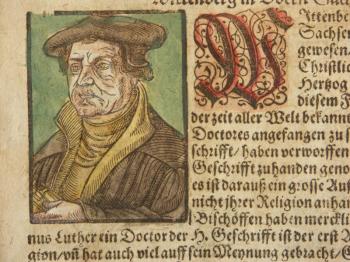 Wittenberg in Obern Sach
Wittenbe
Sachsen
gewesen
Christlic
Hertzog
diesem F
der zeit aller Welt bekannt
Doctores angefangen zu s
schrifft/ haben verworffen
Geschrifft zuhanden geno
es ist darauß ein grosse Auff
nicht jhrer Religion anhan
Bischöffen haben merckli
nus Luther ein Doctor der H. Geschrifft ist der erst A
gion/ vñ hat auch viel auff sein Meynung gebracht/